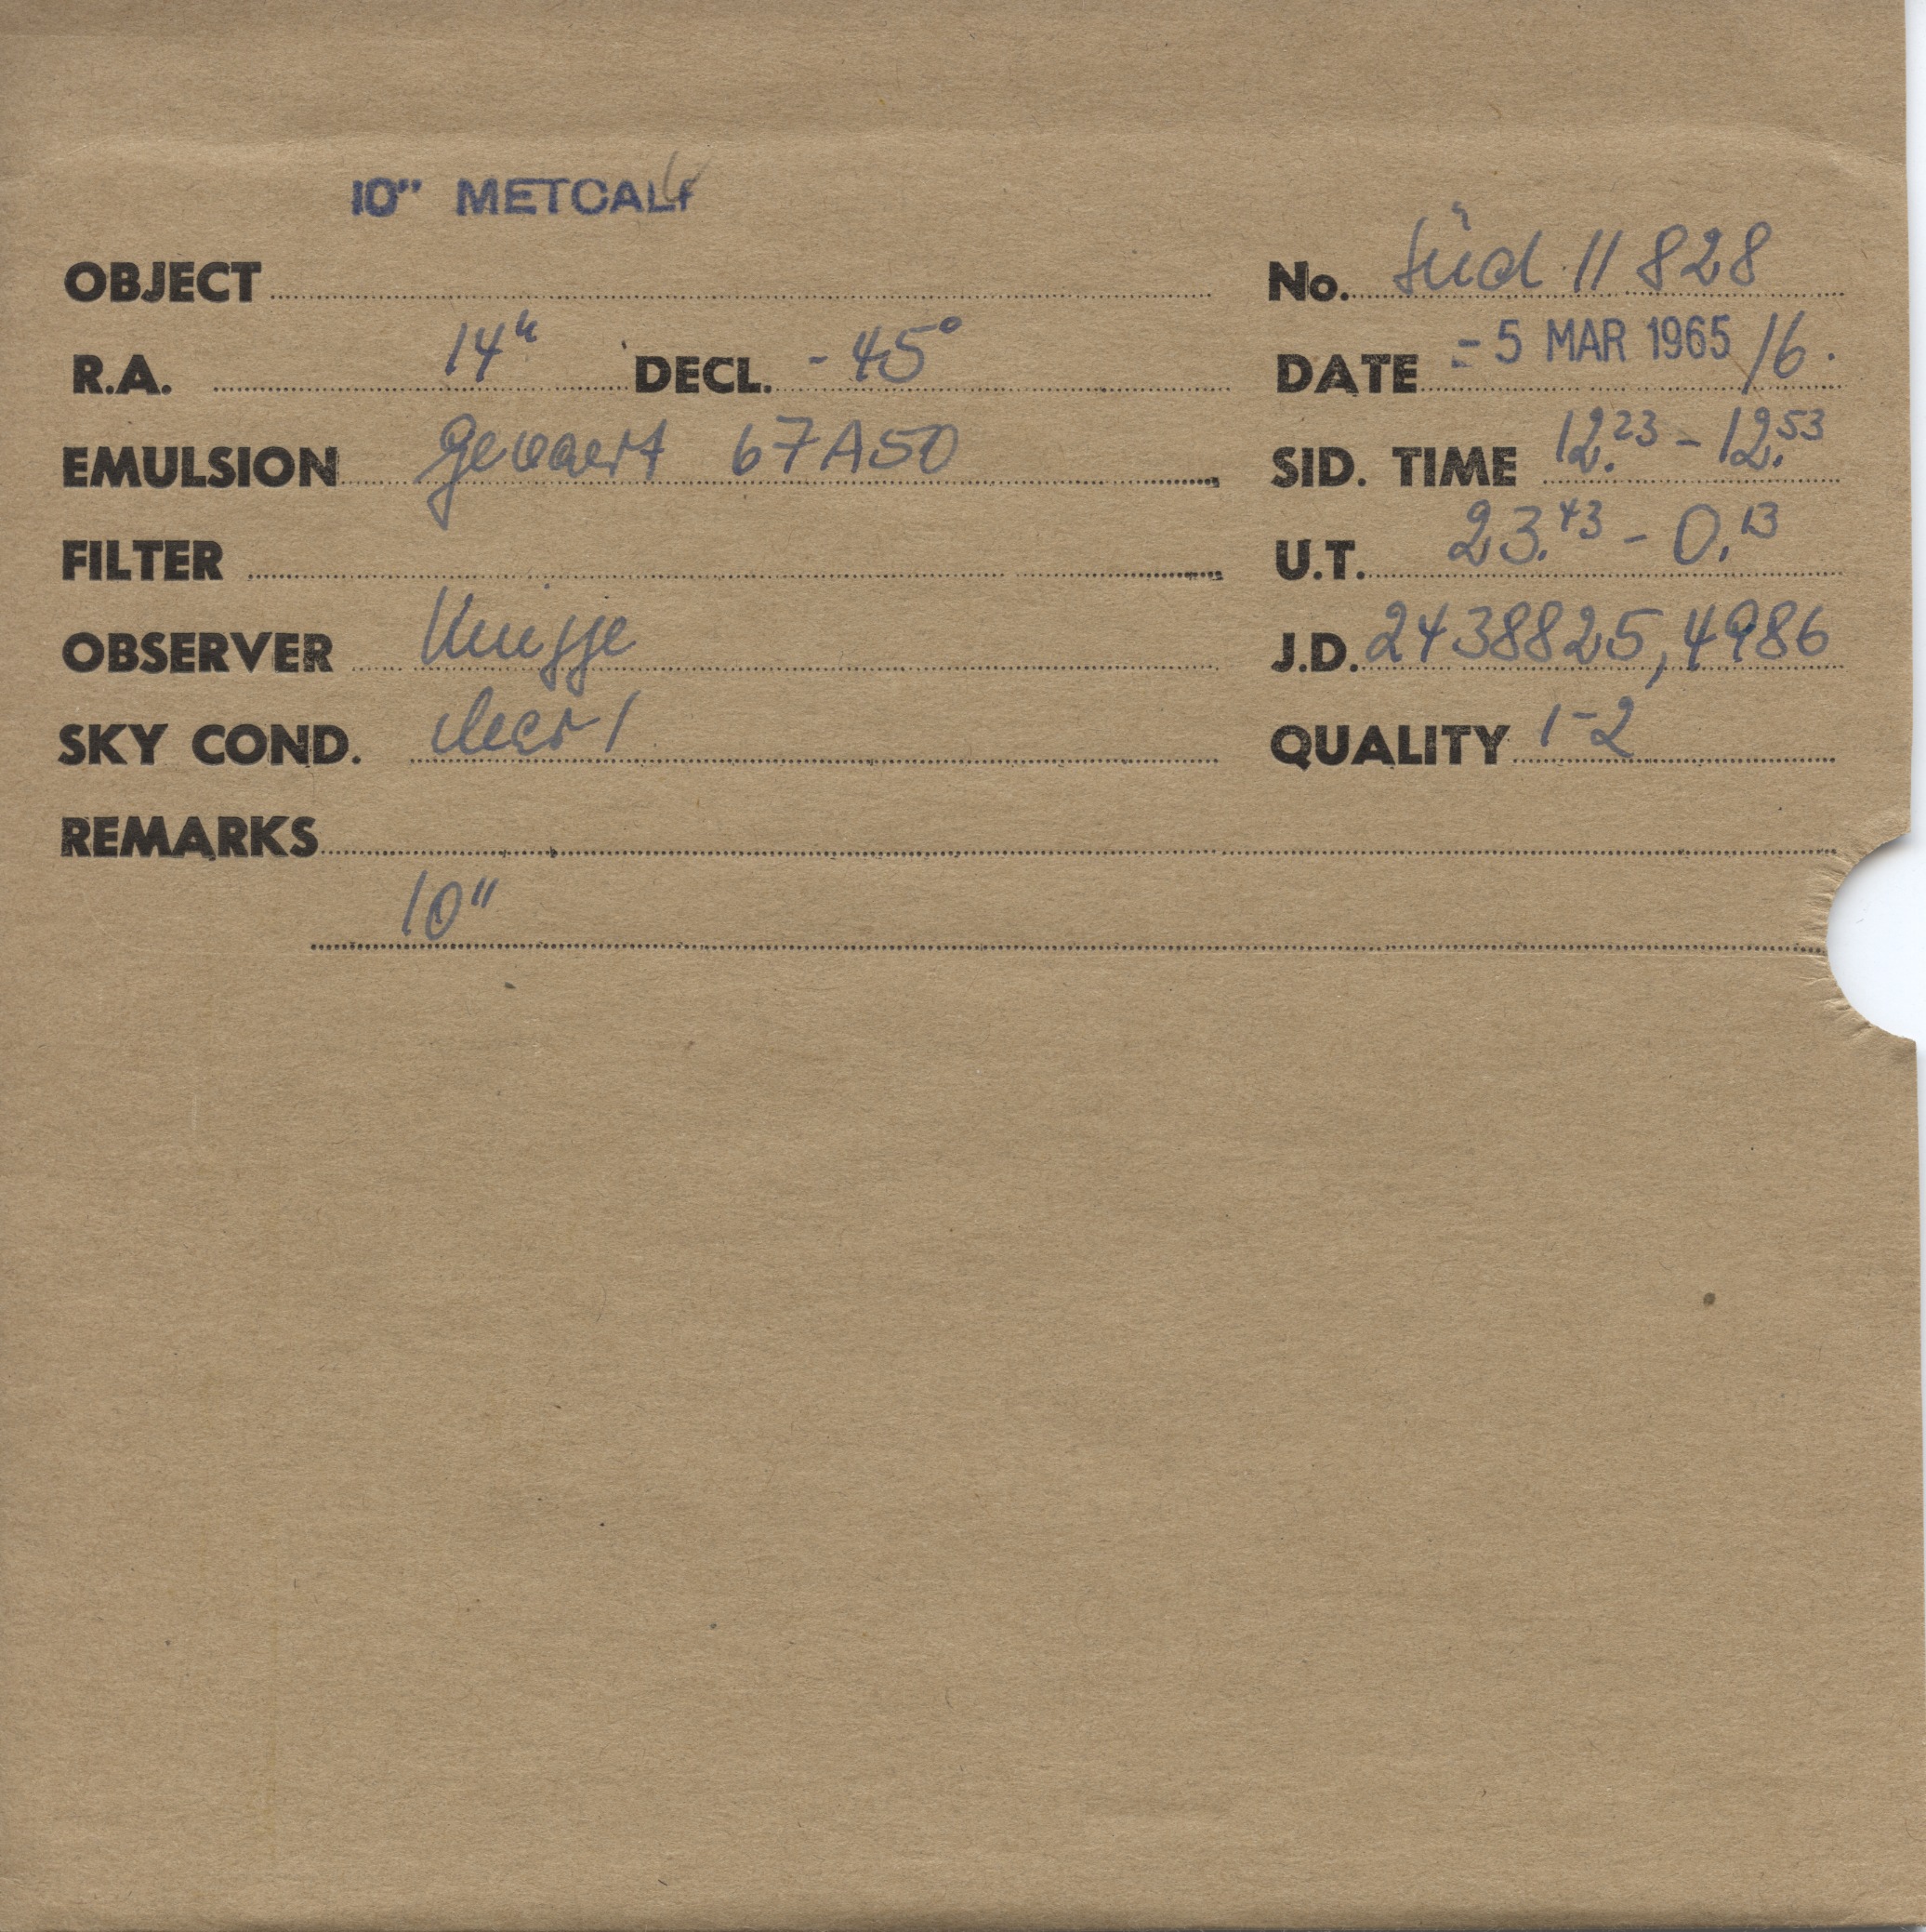 10" METCALF
OBJECT No. Süd 11828
R.A. 14h DECL. -45° DATE -5 MAR 1965/6.
EMULSION Gevaert 67A50 SID. TIME 12.23 - 12.53
FILTER U.T. 23.43 - 0.13
OBSERVER Knigge J.D. 2438825,4986
SKY COND. clear 1 QUALITY 1-2
REMARKS
10"